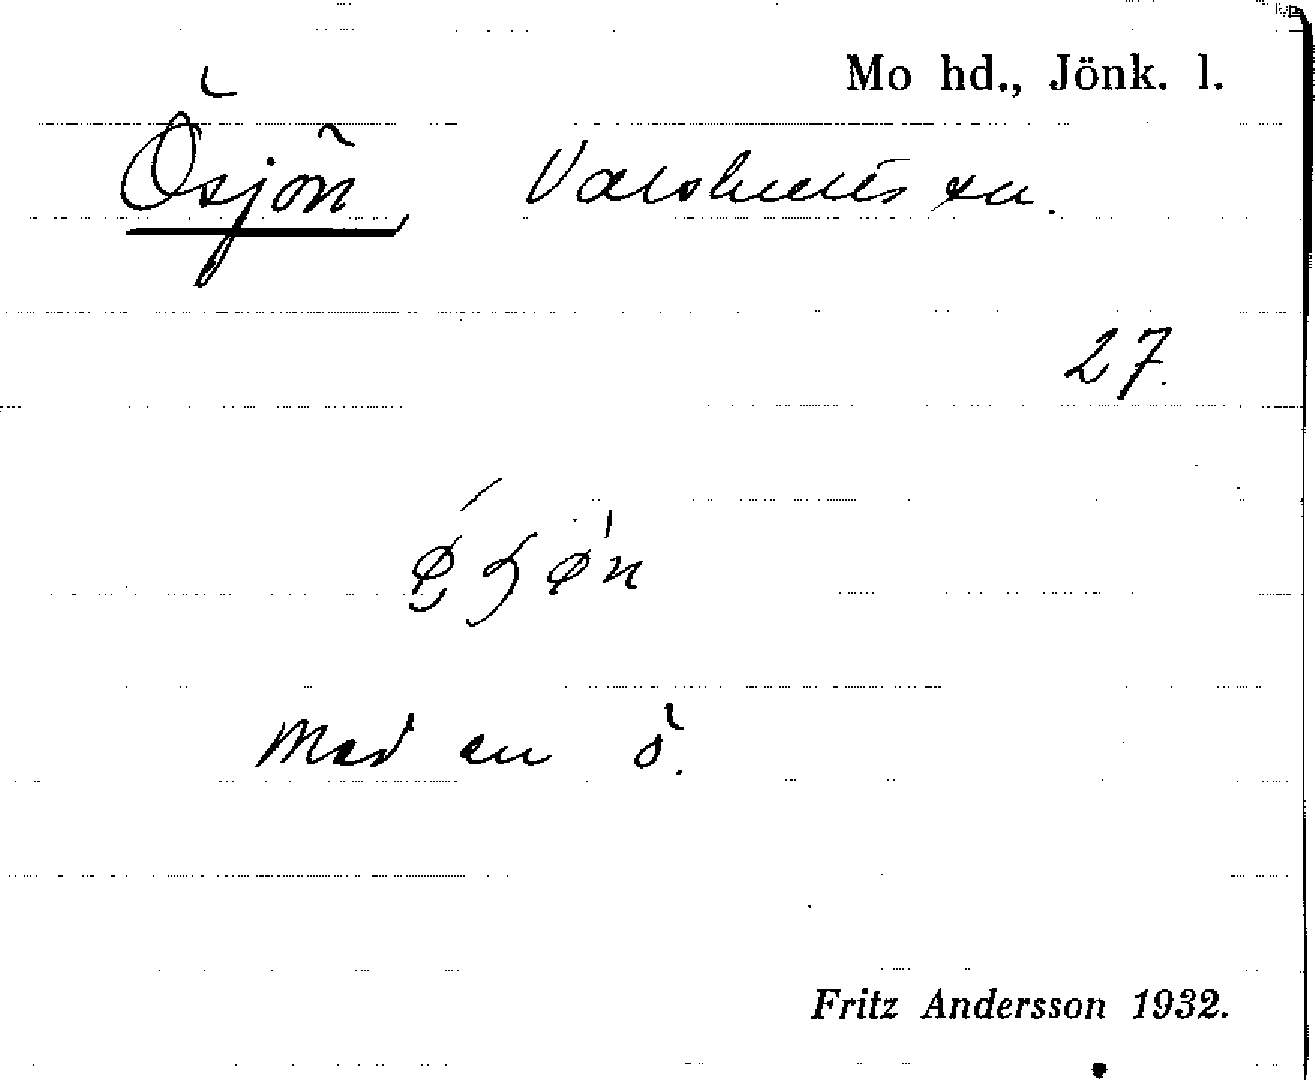 Mo hd., Jönk. l.
Ösjön, Valshults sn.
27.
Med en ö.
Fritz Andersson 1932.